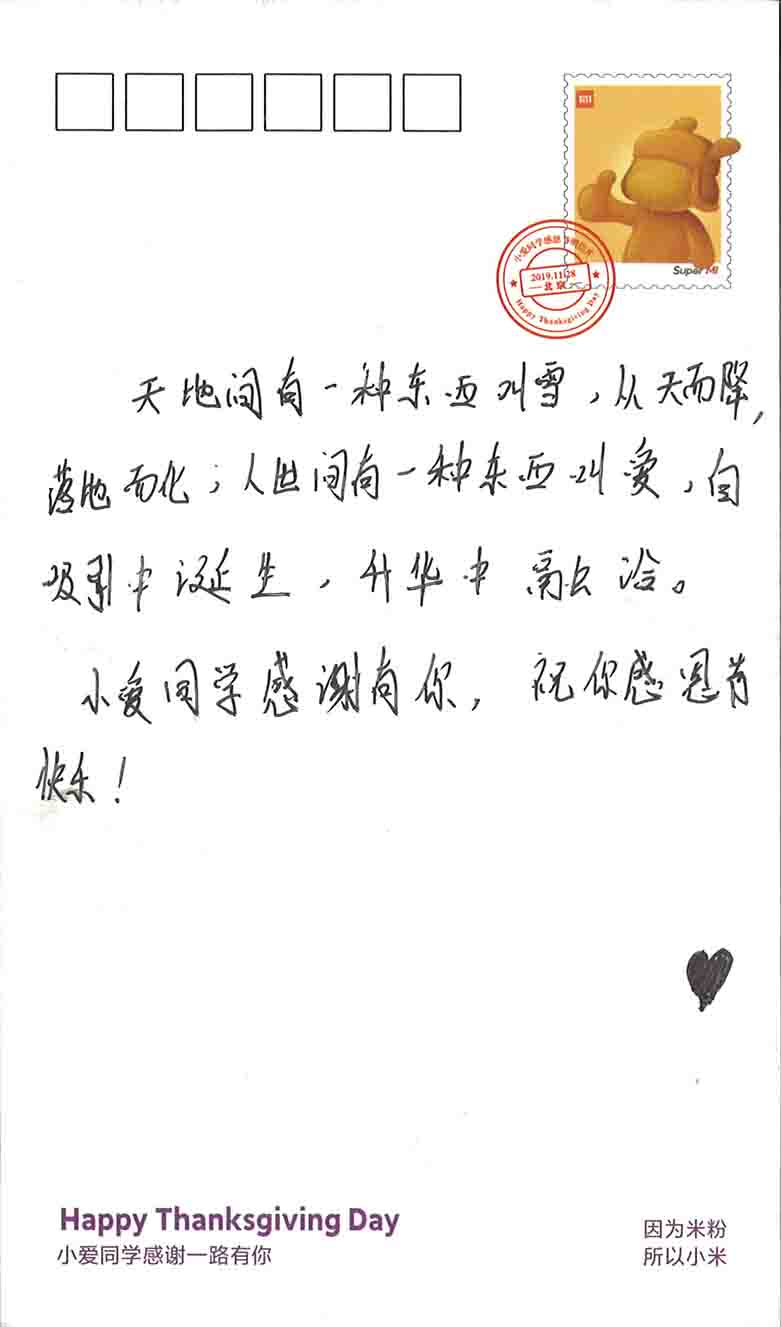 Super MI
小爱同学感恩节明信片
2019.11.28
北京
Happy Thanksgiving Day
天地间有一种东西叫雪，从天而降，
落地而化；人世间有一种东西叫爱，自
吸引中诞生，升华中融洽。
小爱同学感谢有你，祝你感恩节
快乐！
Happy Thanksgiving Day
小爱同学感谢一路有你
因为米粉
所以小米